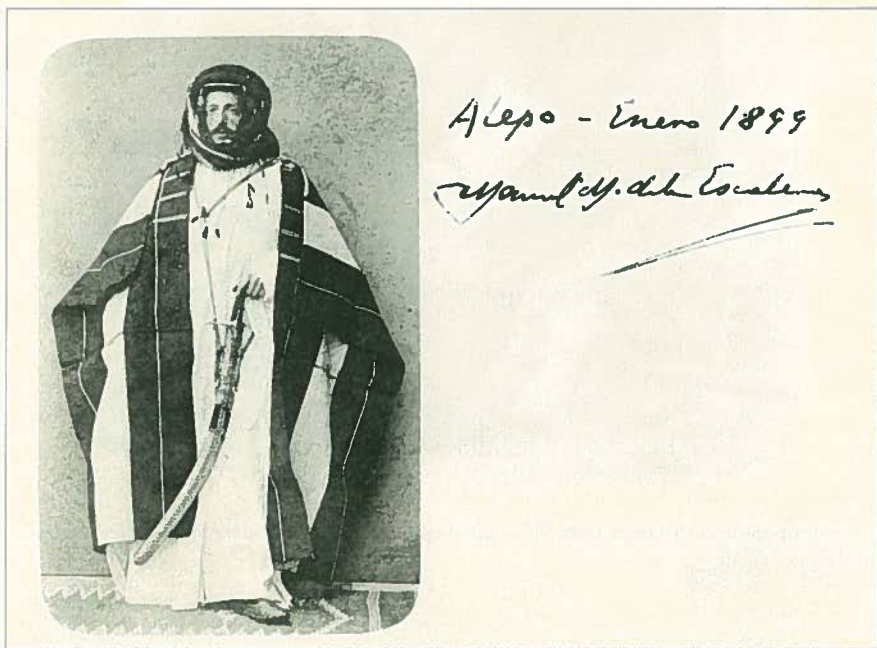 Alepo - Enero 1899
Manuel M. de la Escalera